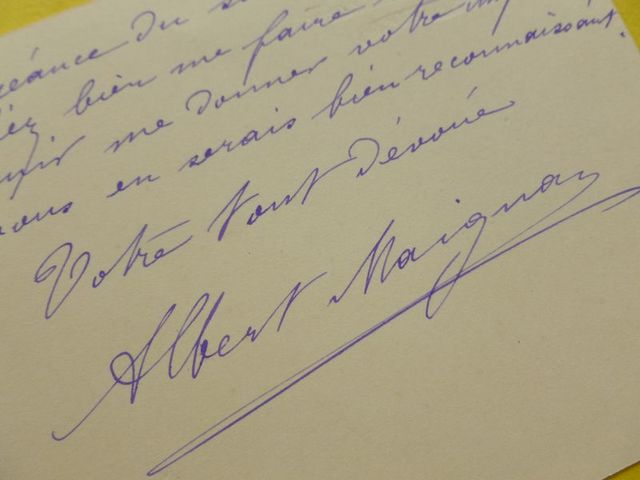 du
bien me faire
me donner votre
en serais bien reconnaissant.
Votre tout dévoué
Albert Maignan